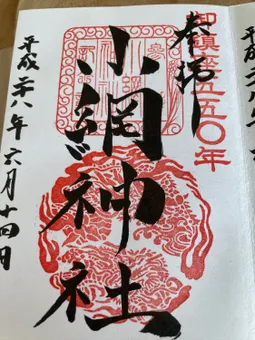 御鎮座五五〇年
奉拝
小網神社
平成二八年六月十四日